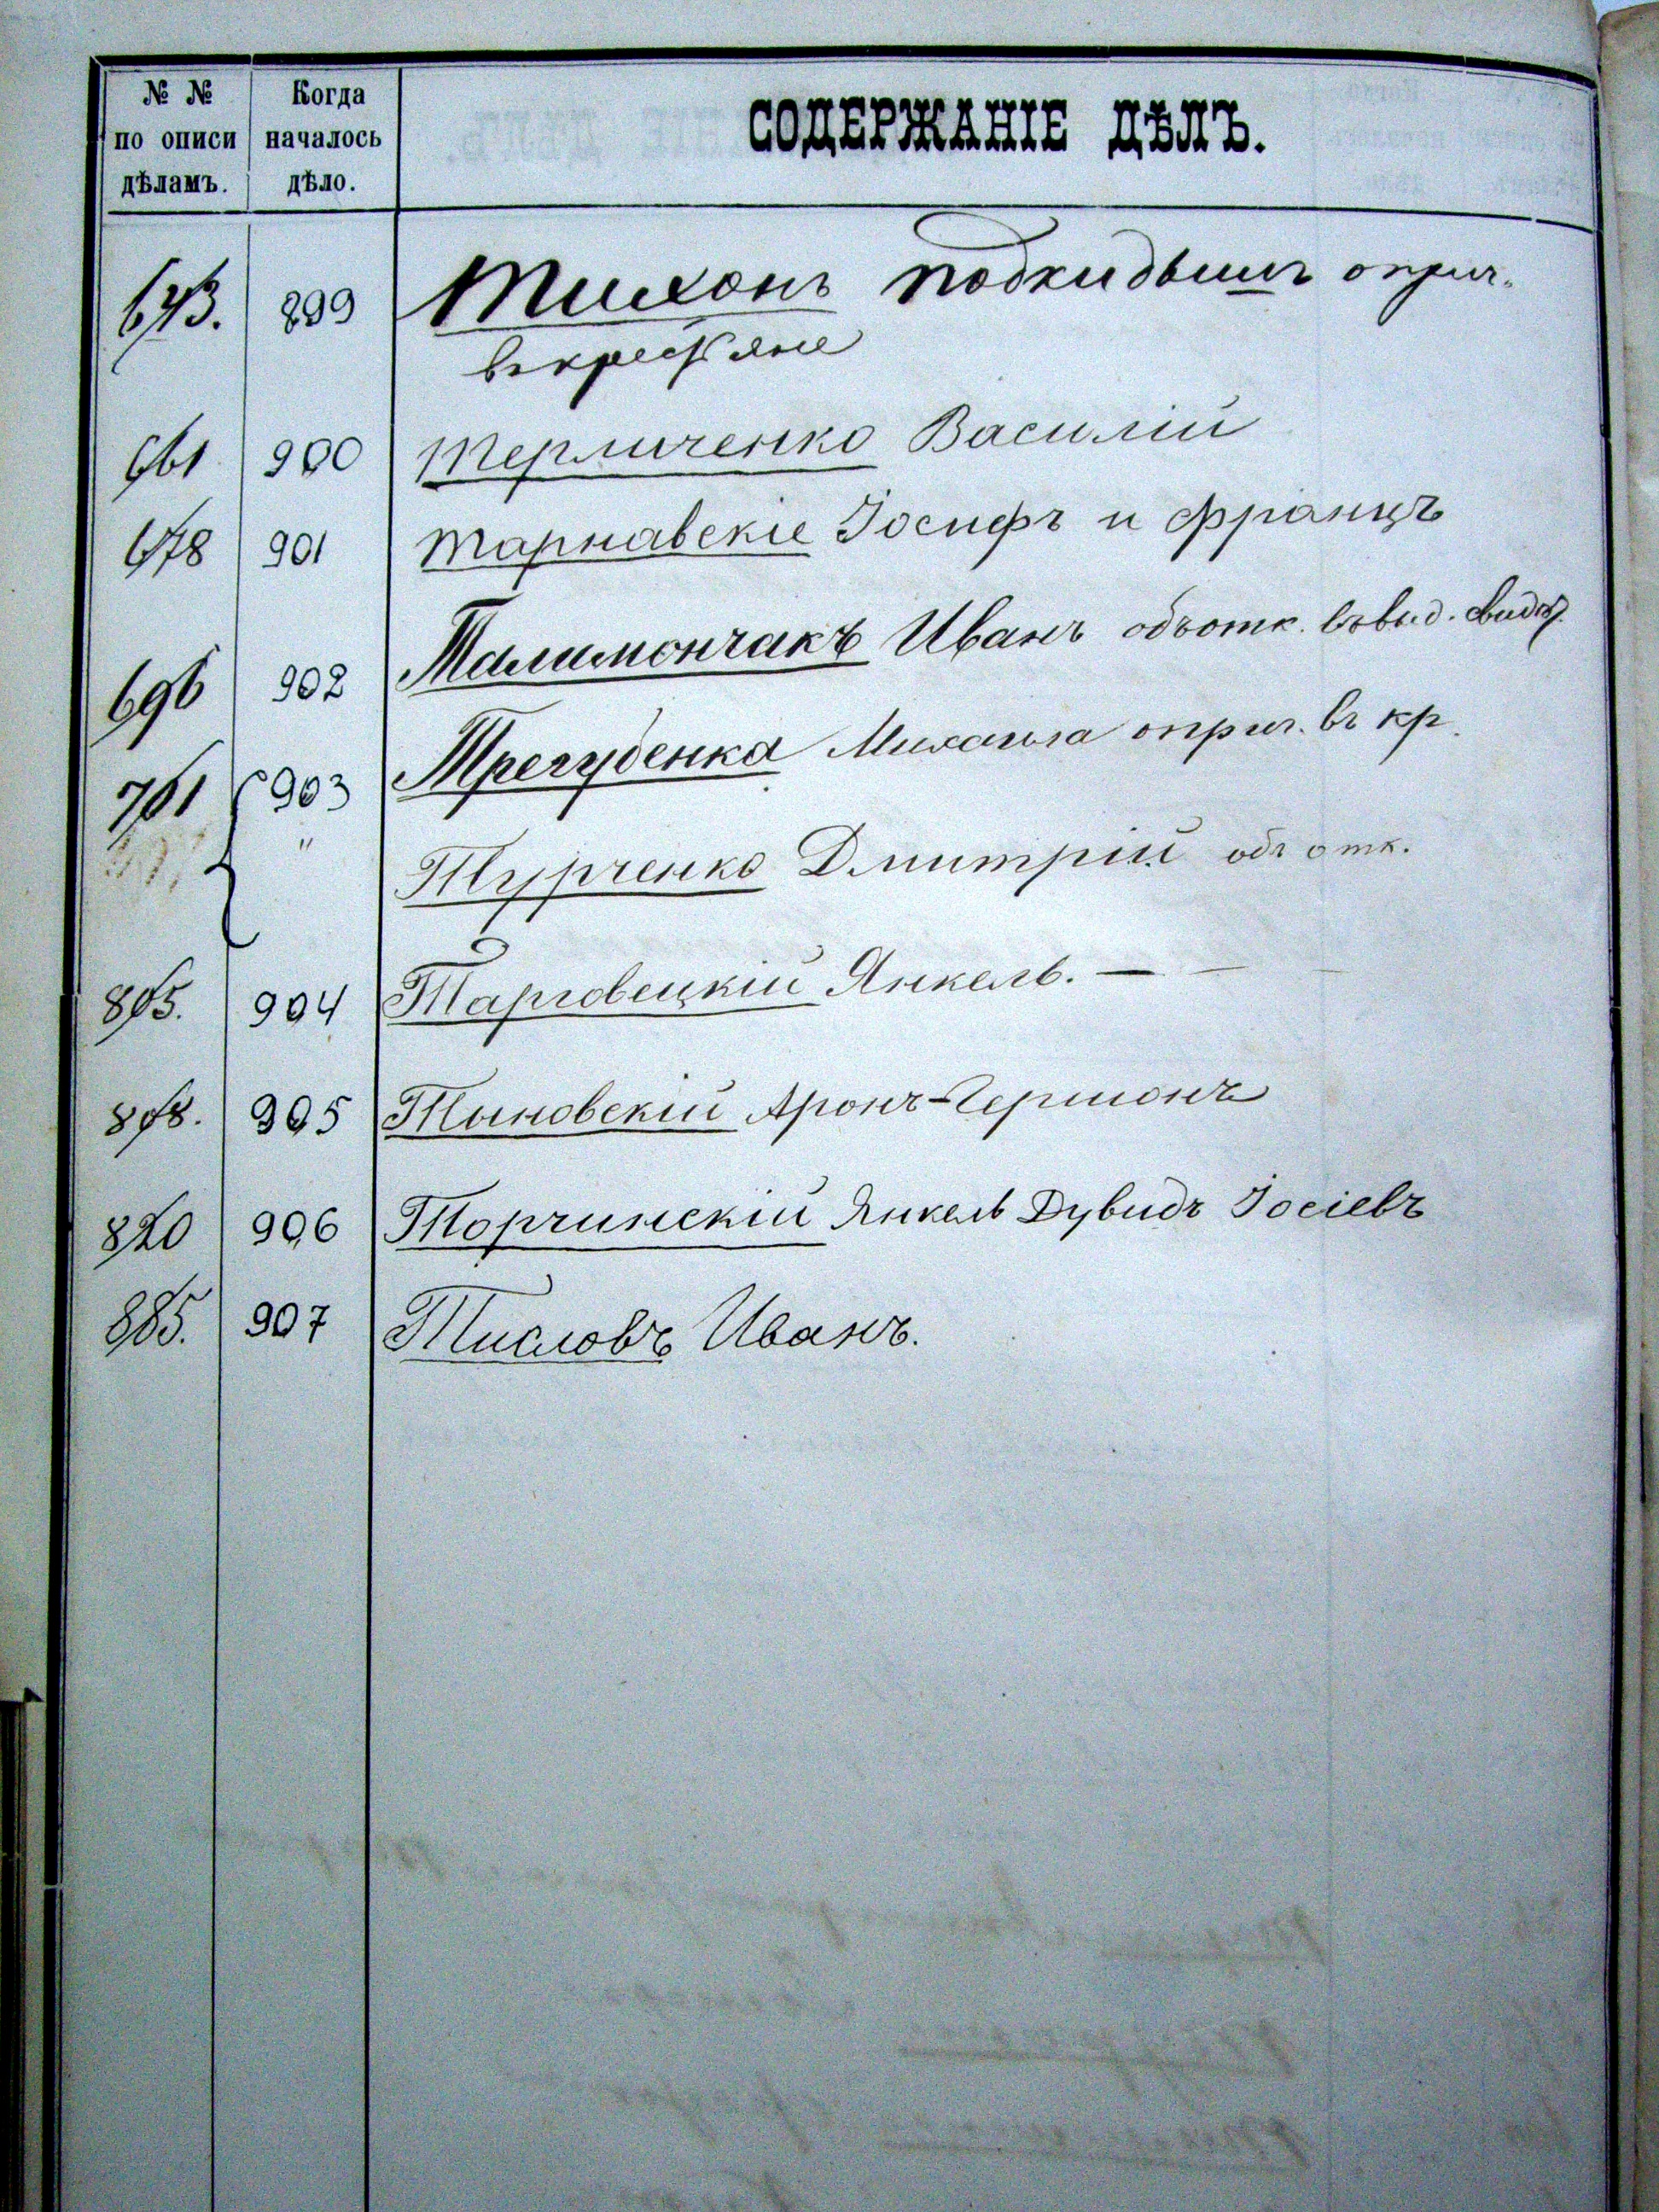 № № по описи дѣламъ. Когда началось дѣло. СОДЕРЖАНІЕ ДѢЛЪ.
643. 899 Тихонъ подкидышъ о прич.
въ крестьяне
661 900 Терличенко Василій
678 901 Тарнавскіе Іосифъ и Францъ
696 902 Талимончакъ Иванъ объ отк. въ выд. свид.
761 903 Трегубенка Михаила о прич. въ кр.
" Турченко Дмитрій объ отк.
805. 904 Тарговецкій Янкель. —
808. 905 Тыновскій Аронъ-Гершонъ
820 906 Торчинскій Янкель Дувидъ Іосіевъ
885. 907 Тисловъ Иванъ.